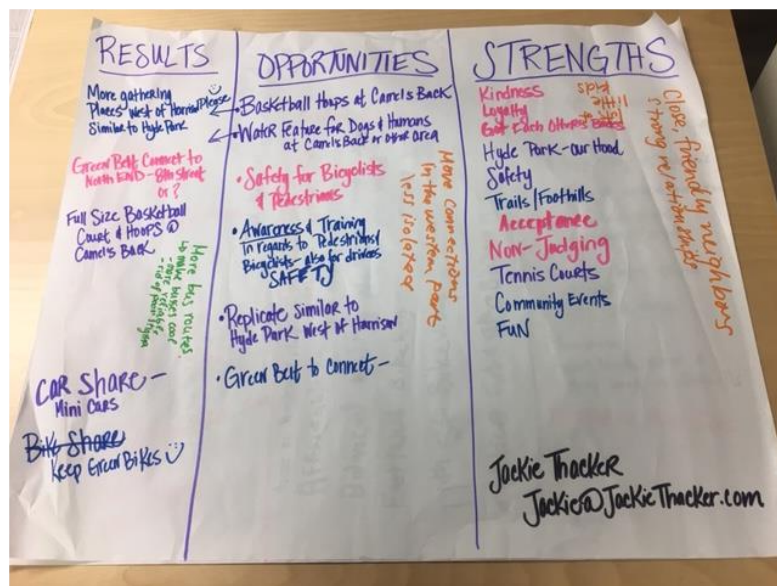 RESULTS
More gathering
Places West of Harrison Please
Similar to Hyde Park
Green Belt Connect to
North END - 8th street
or?
Full Size Basketball
Court & Hoops @
Camels Back
More bus routes
to make busses cool
- more reliable
CAR SHARE -
Mini Cars
Bike Share
Keep Green Bikes
OPPORTUNITIES
Basketball Hoops at Camels Back
Water Feature for Dogs & Humans
at Camels Back or other area
• Safety for Bicyclists
& Pedestrians
• Awareness & Training
In regards to Pedestrians/
Bicyclists - also for drivers
SAFETY
• Replicate Similar to
Hyde Park West of Harrison
• Green Belt to connect -
More connections
In the western part
less isolated
STRENGTHS
Kindness
Loyalty
Got Each Others Backs
Hyde Park - our Hood
Safety
Trails/Foothills
Acceptance
Non-Judging
Tennis Courts
Community Events
FUN
kids
Close, friendly neighbors
strong relationships
Jackie Thacker
Jackie@JackieThacker.com